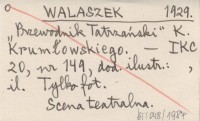 WALASZEK 1929.
"Przewodnik Tatrzański" K.
Krumłowskiego. — IKC
20, nr 149, dod. ilustr.: ,
il. Tylko fot.
Scena teatralna.